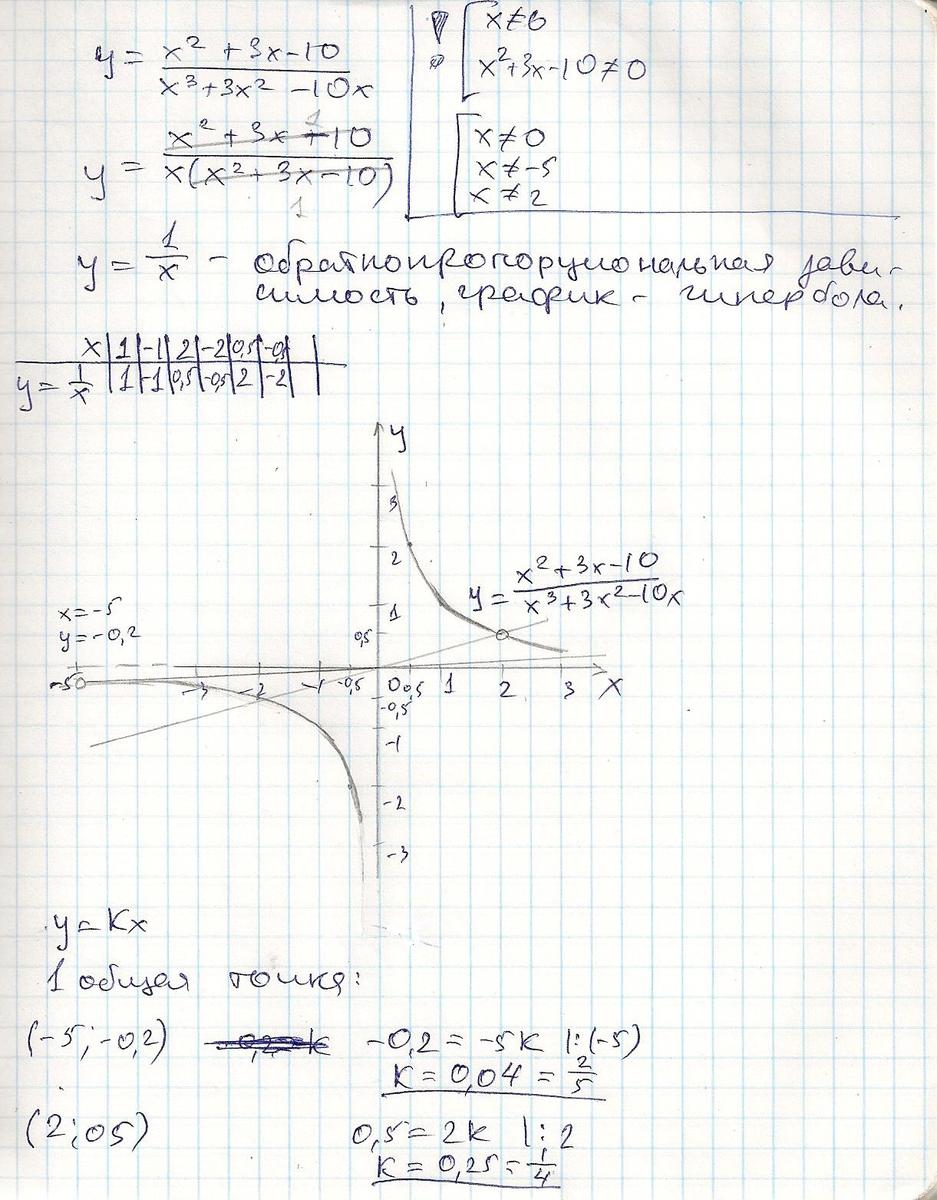 y = (x² + 3x - 10)/(x³ + 3x² - 10x)
! [ x ≠ 0
x² + 3x - 10 ≠ 0
y = (x² + 3x + 10)/(x(x² + 3x - 10))
1
1
[ x ≠ 0
x ≠ -5
x ≠ 2
y = 1/x - обратнопропорциональная зави-
симость, график - гипербола.
x | 1 | -1 | 2 | -2 | 0,5 | -0,5
y = 1/x | 1 | -1 | 0,5 | -0,5 | 2 | -2
y
3
2
y = (x² + 3x - 10)/(x³ + 3x² - 10x)
x = -5
y = -0,2
1
0,5
-5 -3 -2 -1 -0,5 0 0,5 1 2 3 x
-0,5
-1
-2
-3
y = Kx
1 общая точка:
(-5; -0,2) -0,2 = -5k |:(-5)
k = 0,04 = 2/5
(2; 05) 0,5 = 2k |:2
k = 0,25 = 1/4